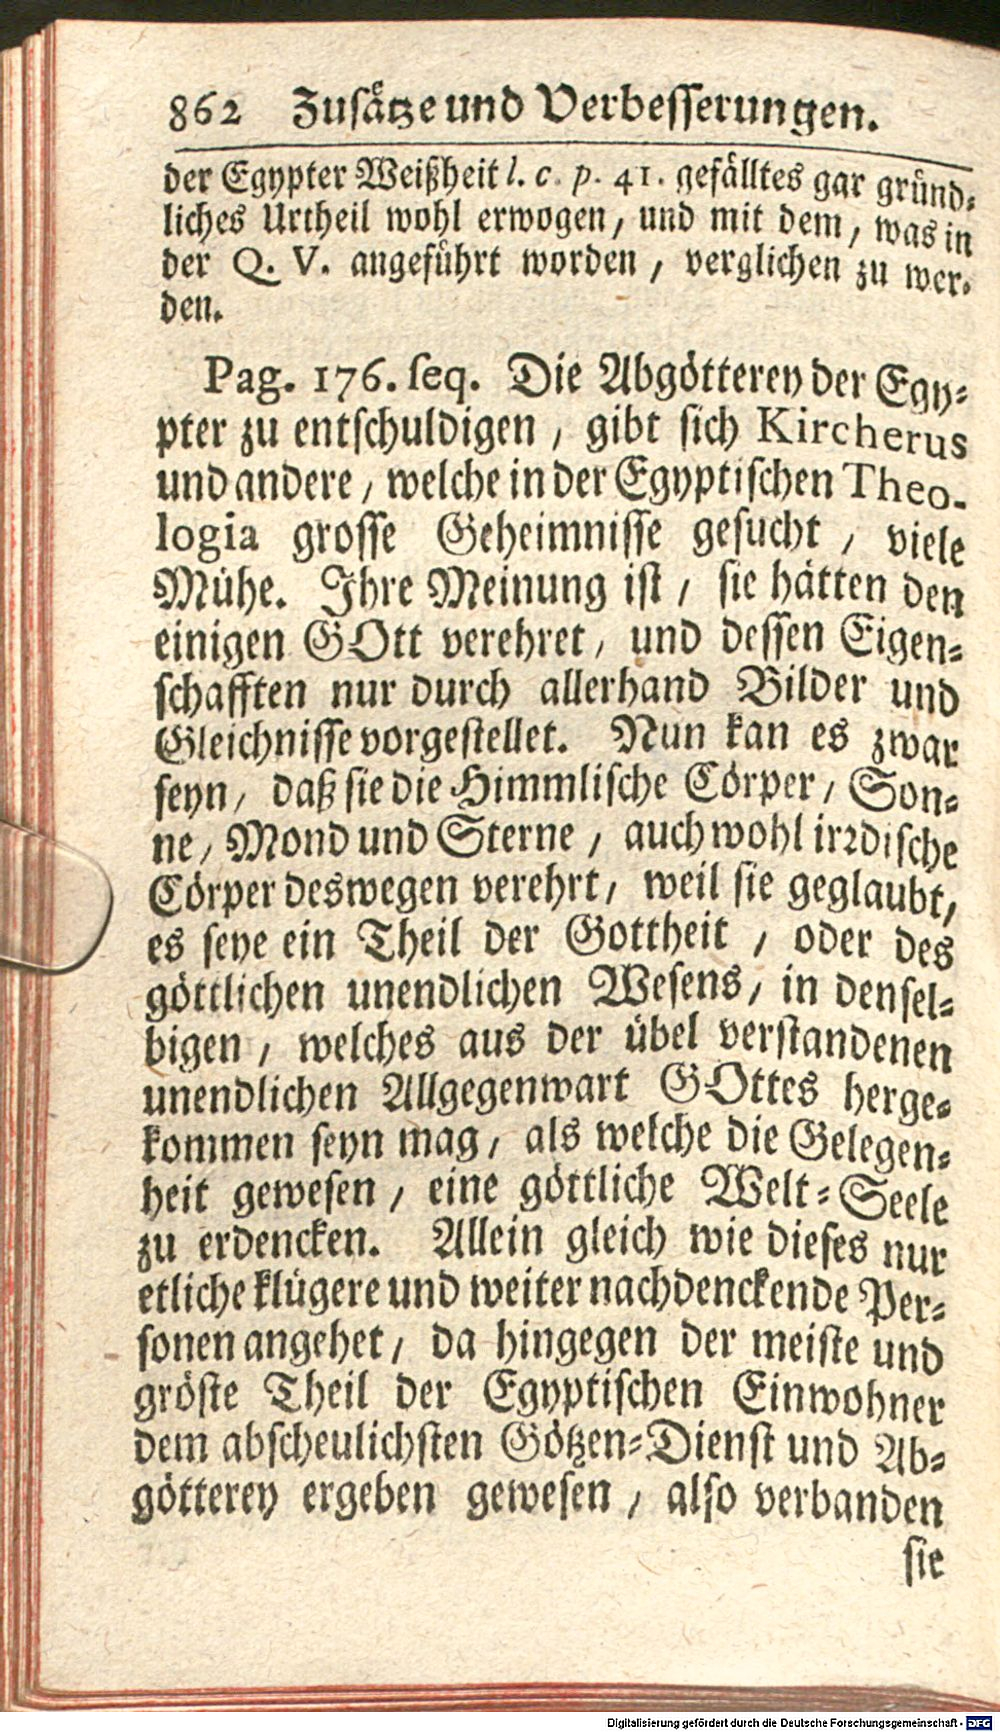 862 Zusätze und Verbesserungen.
der Egypter Weißheit l. c. p. 41. gefälltes gar gründ-
liches Urtheil wohl erwogen, und mit dem, was in
der Q. V. angeführt worden, verglichen zu wer-
den.
Pag. 176. seq. Die Abgötterey der Egy-
pter zu entschuldigen, gibt sich Kircherus
und andere, welche in der Egyptischen Theo-
logia grosse Geheimnisse gesucht, viele
Mühe. Ihre Meinung ist, sie hätten den
einigen GOtt verehret, und dessen Eigen-
schafften nur durch allerhand Bilder und
Gleichnisse vorgestellet. Nun kan es zwar
seyn, daß sie die Himmlische Cörper, Son-
ne, Mond und Sterne, auch wohl irrdische
Cörper deswegen verehrt, weil sie geglaubt,
es seye ein Theil der Gottheit, oder des
göttlichen unendlichen Wesens, in densel-
bigen, welches aus der übel verstandenen
unendlichen Allgegenwart GOttes herge-
kommen seyn mag, als welche die Gelegen-
heit gewesen, eine göttliche Welt-Seele
zu erdencken. Allein gleich wie dieses nur
etliche klügere und weiter nachdenckende Per-
sonen angehet, da hingegen der meiste und
gröste Theil der Egyptischen Einwohner
dem abscheulichsten Götzen-Dienst und Ab-
götterey ergeben gewesen, also verbanden
sie
Digitalisierung gefördert durch die Deutsche Forschungsgemeinschaft - DFG